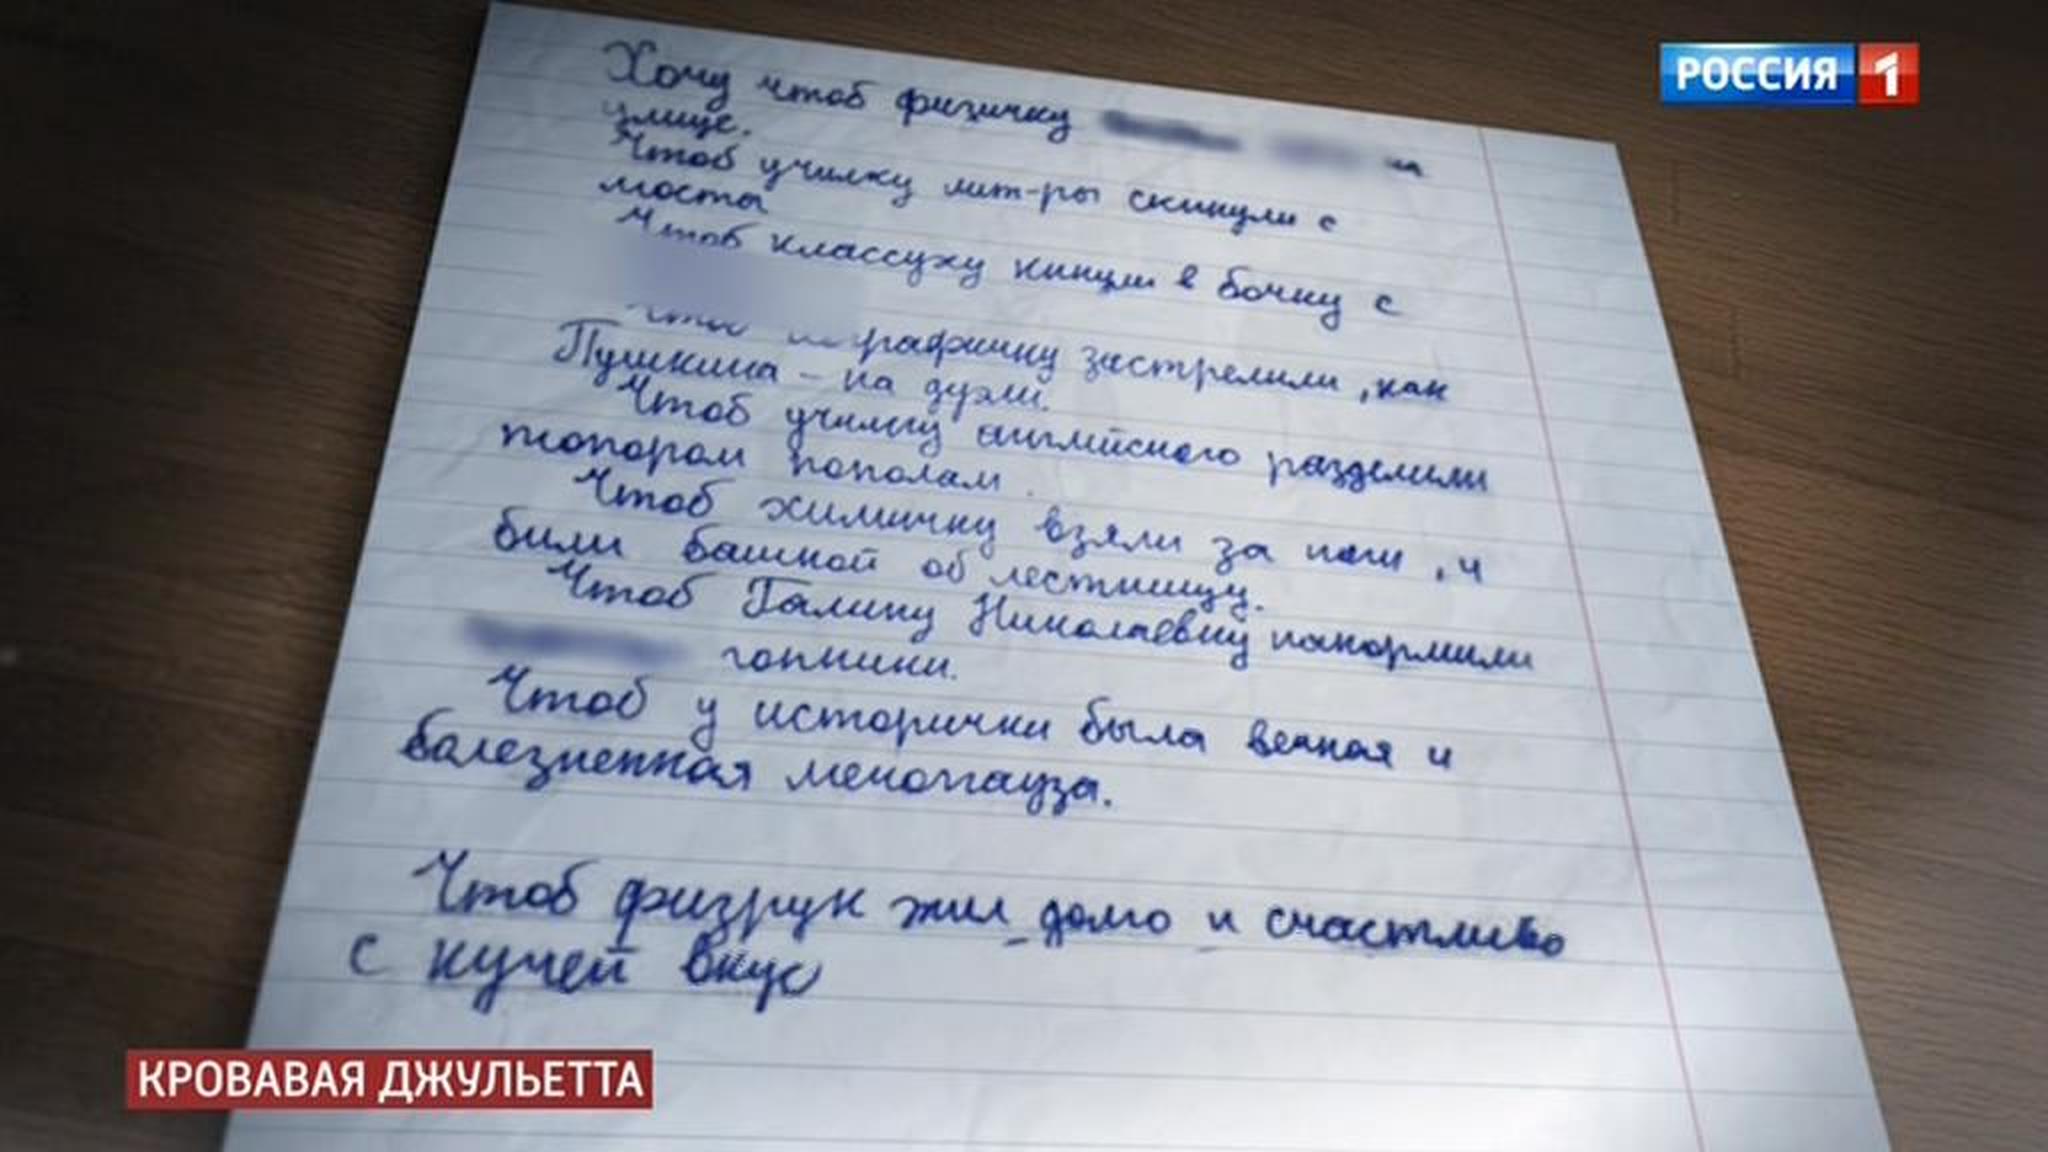 РОССИЯ 1
Хочу чтоб физичку на
улице.
Чтоб училку лит-ры скинули с
моста
Чтоб классуху кинули в бочку с
Чтоб застрелили, как
Пушкина - на дуэли.
Чтоб училку английского разделили
топором пополам.
Чтоб химичку взяли за ноги, и
били башкой об лестницу.
Чтоб Галину Николаевну накормили
гопники.
Чтоб у исторички была вечная и
болезненная менопауза.
Чтоб физрук жил долго и счастливо
с кучей вкус
КРОВАВАЯ ДЖУЛЬЕТТА